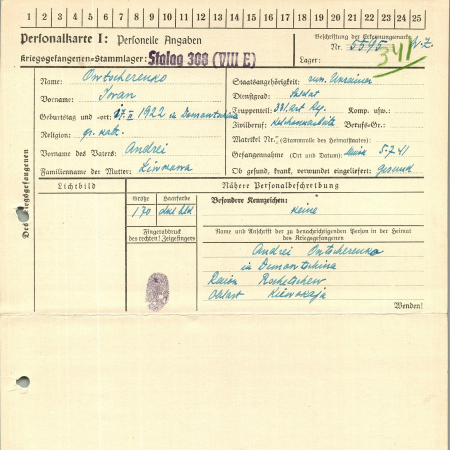 1 2 3 4 5 6 7 8 9 10 11 12 13 14 15 16 17 18 19 20 21 22 23 24 25
Personalkarte I: Personelle Angaben
Kriegsgefangenen-Stammlager: Stalag 308 (VIII E)
Beschriftung der Erkennungsmarke
Nr. 5595
341
Lager:
Des Kriegsgefangenen
Name: Owtscherenko
Vorname: Iwan
Geburtstag und -ort: 17. II 1922 in
Religion: gr. kath.
Vorname des Vaters: Andrei
Familienname der Mutter:
Staatsangehörigkeit: russ. Ukrainer
Dienstgrad: Soldat
Truppenteil: 331 Art Reg. Komp. usw.:
Zivilberuf: Kolchosarbeiter Berufs-Gr.:
Matrikel Nr. (Stammrolle des Heimatstaates):
Gefangennahme (Ort und Datum): Minsk 5.7.41
Ob gesund, krank, verwundet eingeliefert: gesund
Lichtbild
Nähere Personalbeschreibung
Größe Haarfarbe
170
Besondere Kennzeichen:
keine
Fingerabdruck
des rechten! Zeigefingers
Name und Anschrift der zu benachrichtigenden Person in der Heimat
des Kriegsgefangenen
Andrei Owtscherenko
in
Raion
Oblast Kiewskaja
Wenden!